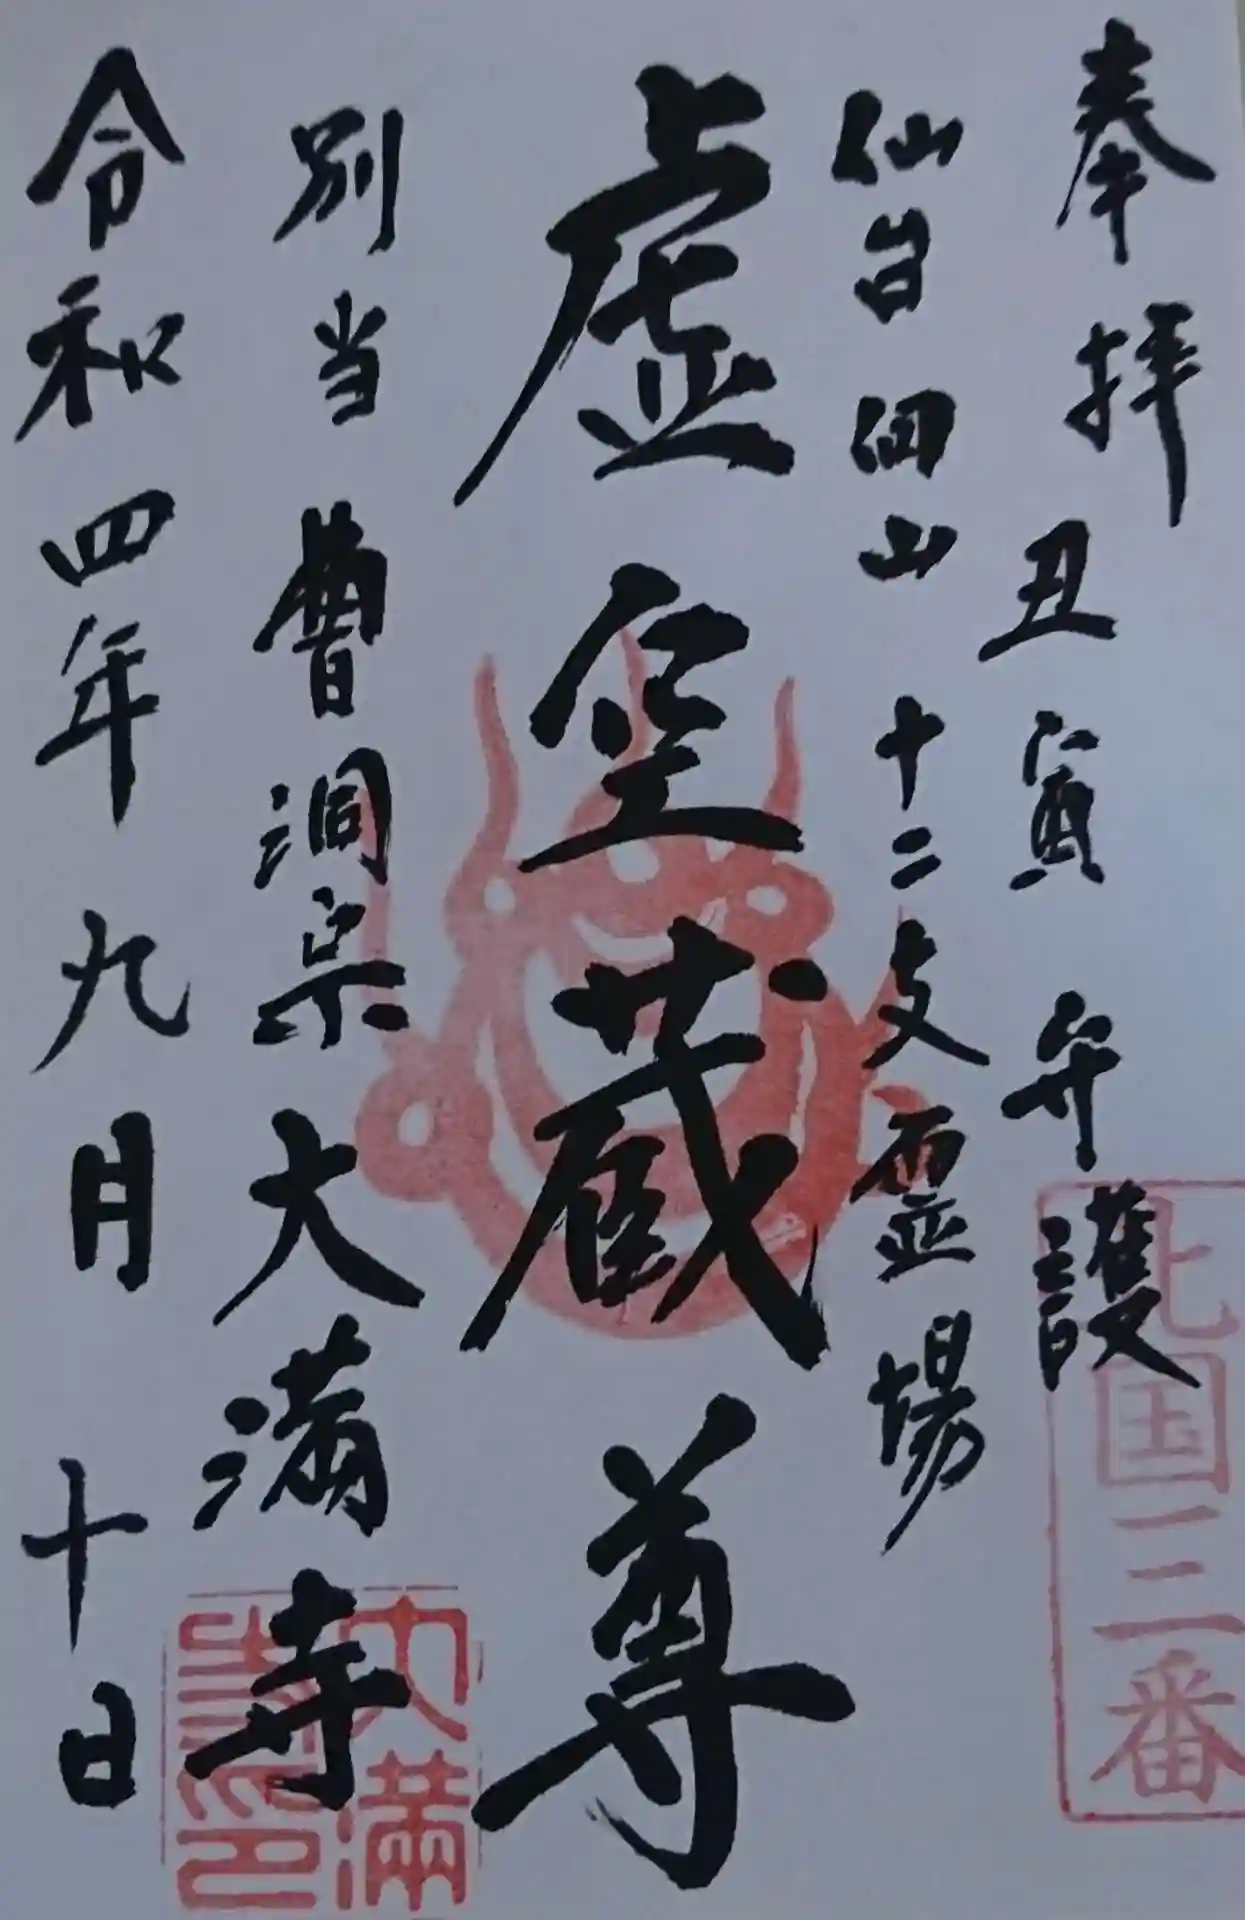 奉拝
丑寅守護
北国三番
仙台向山十二支霊場
虚空蔵尊
別当曹洞宗大満寺
大満寺印
令和四年九月十日